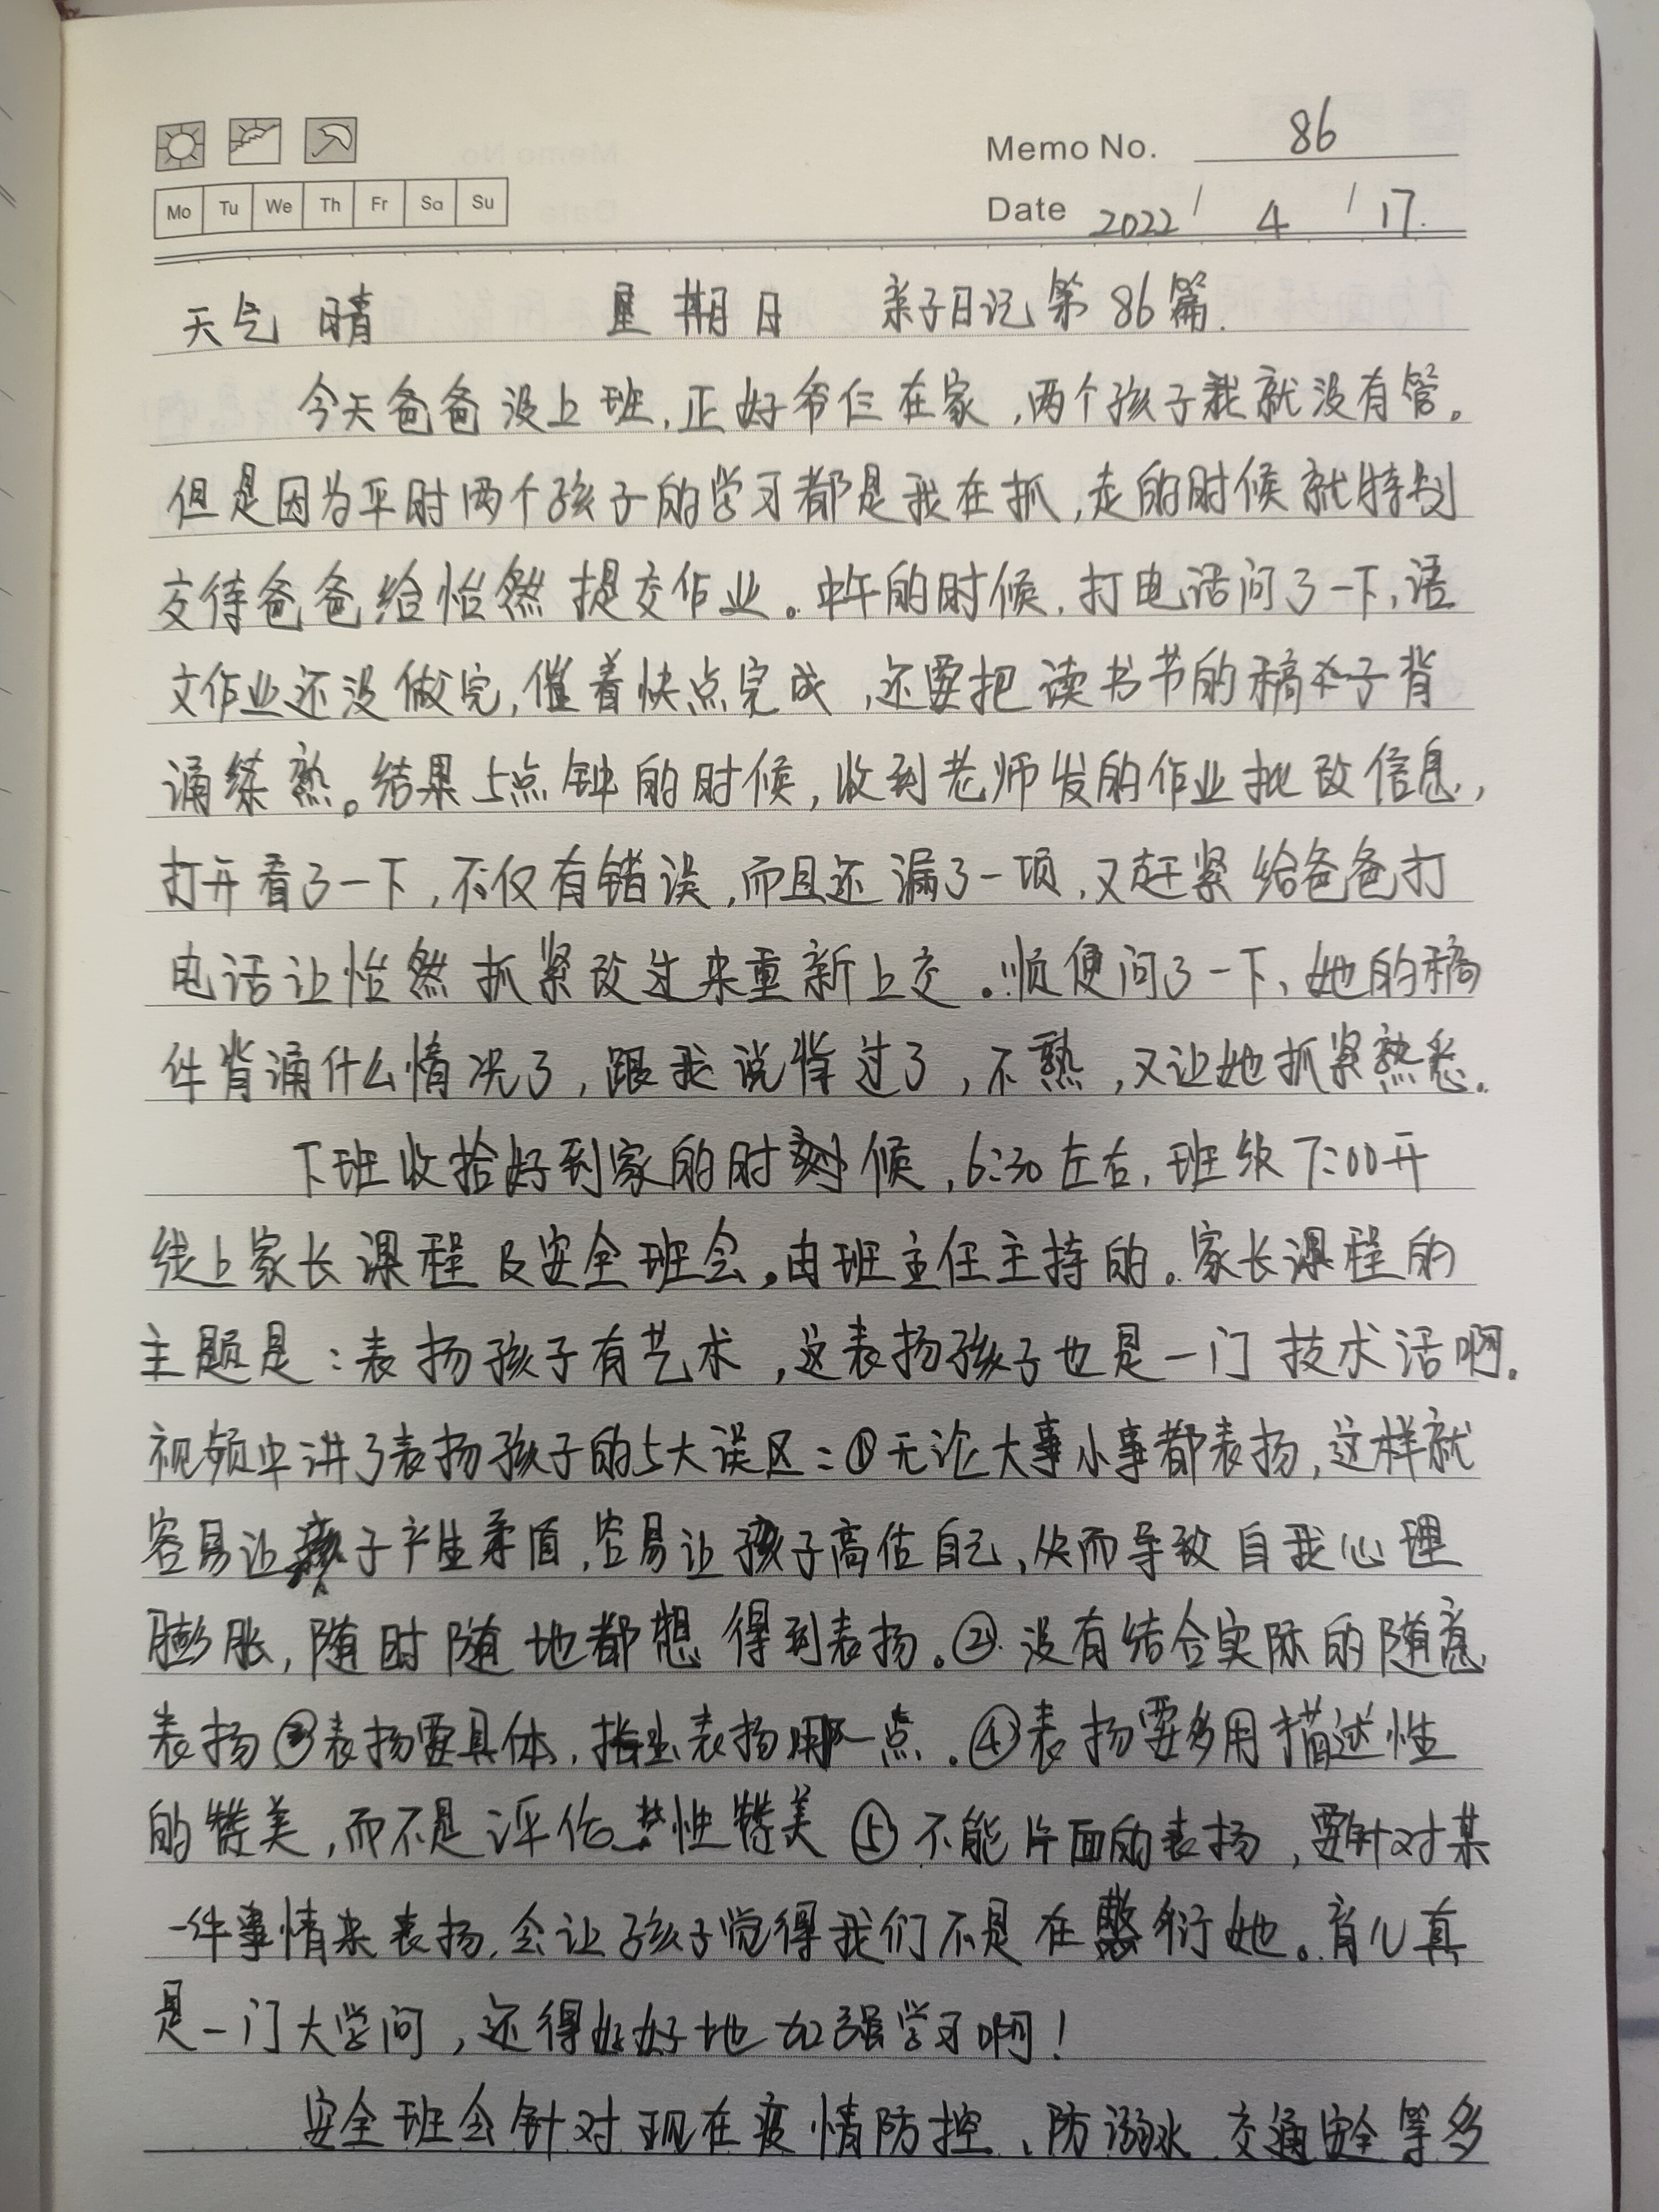 Memo No. 86
Mo Tu We Th Fr Sa Su
Date 2022 / 4 / 17.
天气 晴 星期日 亲子日记第86篇.
今天爸爸没上班,正好爷仨在家,两个孩子我就没有管。
但是因为平时两个孩子的学习都是我在抓,走的时候就特别
交待爸爸给怡然提交作业。中午的时候,打电话问了一下,语
文作业还没做完,催着快点完成,还要把读书节的稿子背
诵练熟。结果5点钟的时候,收到老师发的作业批改信息,
打开看了一下,不仅有错误,而且还漏了一项,又赶紧给爸爸打
电话让怡然抓紧改过来重新上交。顺便问了一下、她的稿
件背诵什么情况了,跟我说背过了,不熟,又让她抓紧熟悉。
下班收拾好到家的时候,6:30左右,班级7:00开
线上家长课程及安全班会。由班主任主持的。家长课程的
主题是:表扬孩子有艺术,这表扬孩子也是一门技术活啊。
视频中讲了表扬孩子的5大误区:①无论大事小事都表扬,这样就
容易让孩子产生矛盾,容易让孩子高估自己,从而导致自我心理
膨胀,随时随地都想得到表扬。②没有结合实际的随意
表扬③表扬要具体,指出表扬哪一点.④表扬要多用描述性
的赞美,而不是评价性赞美⑤不能片面的表扬,要针对某
一件事情来表扬,会让孩子觉得我们不是在敷衍她。育儿真
是一门大学问,还得好好地加强学习啊!
安全班会针对现在疫情防控、防溺水、交通安全等多